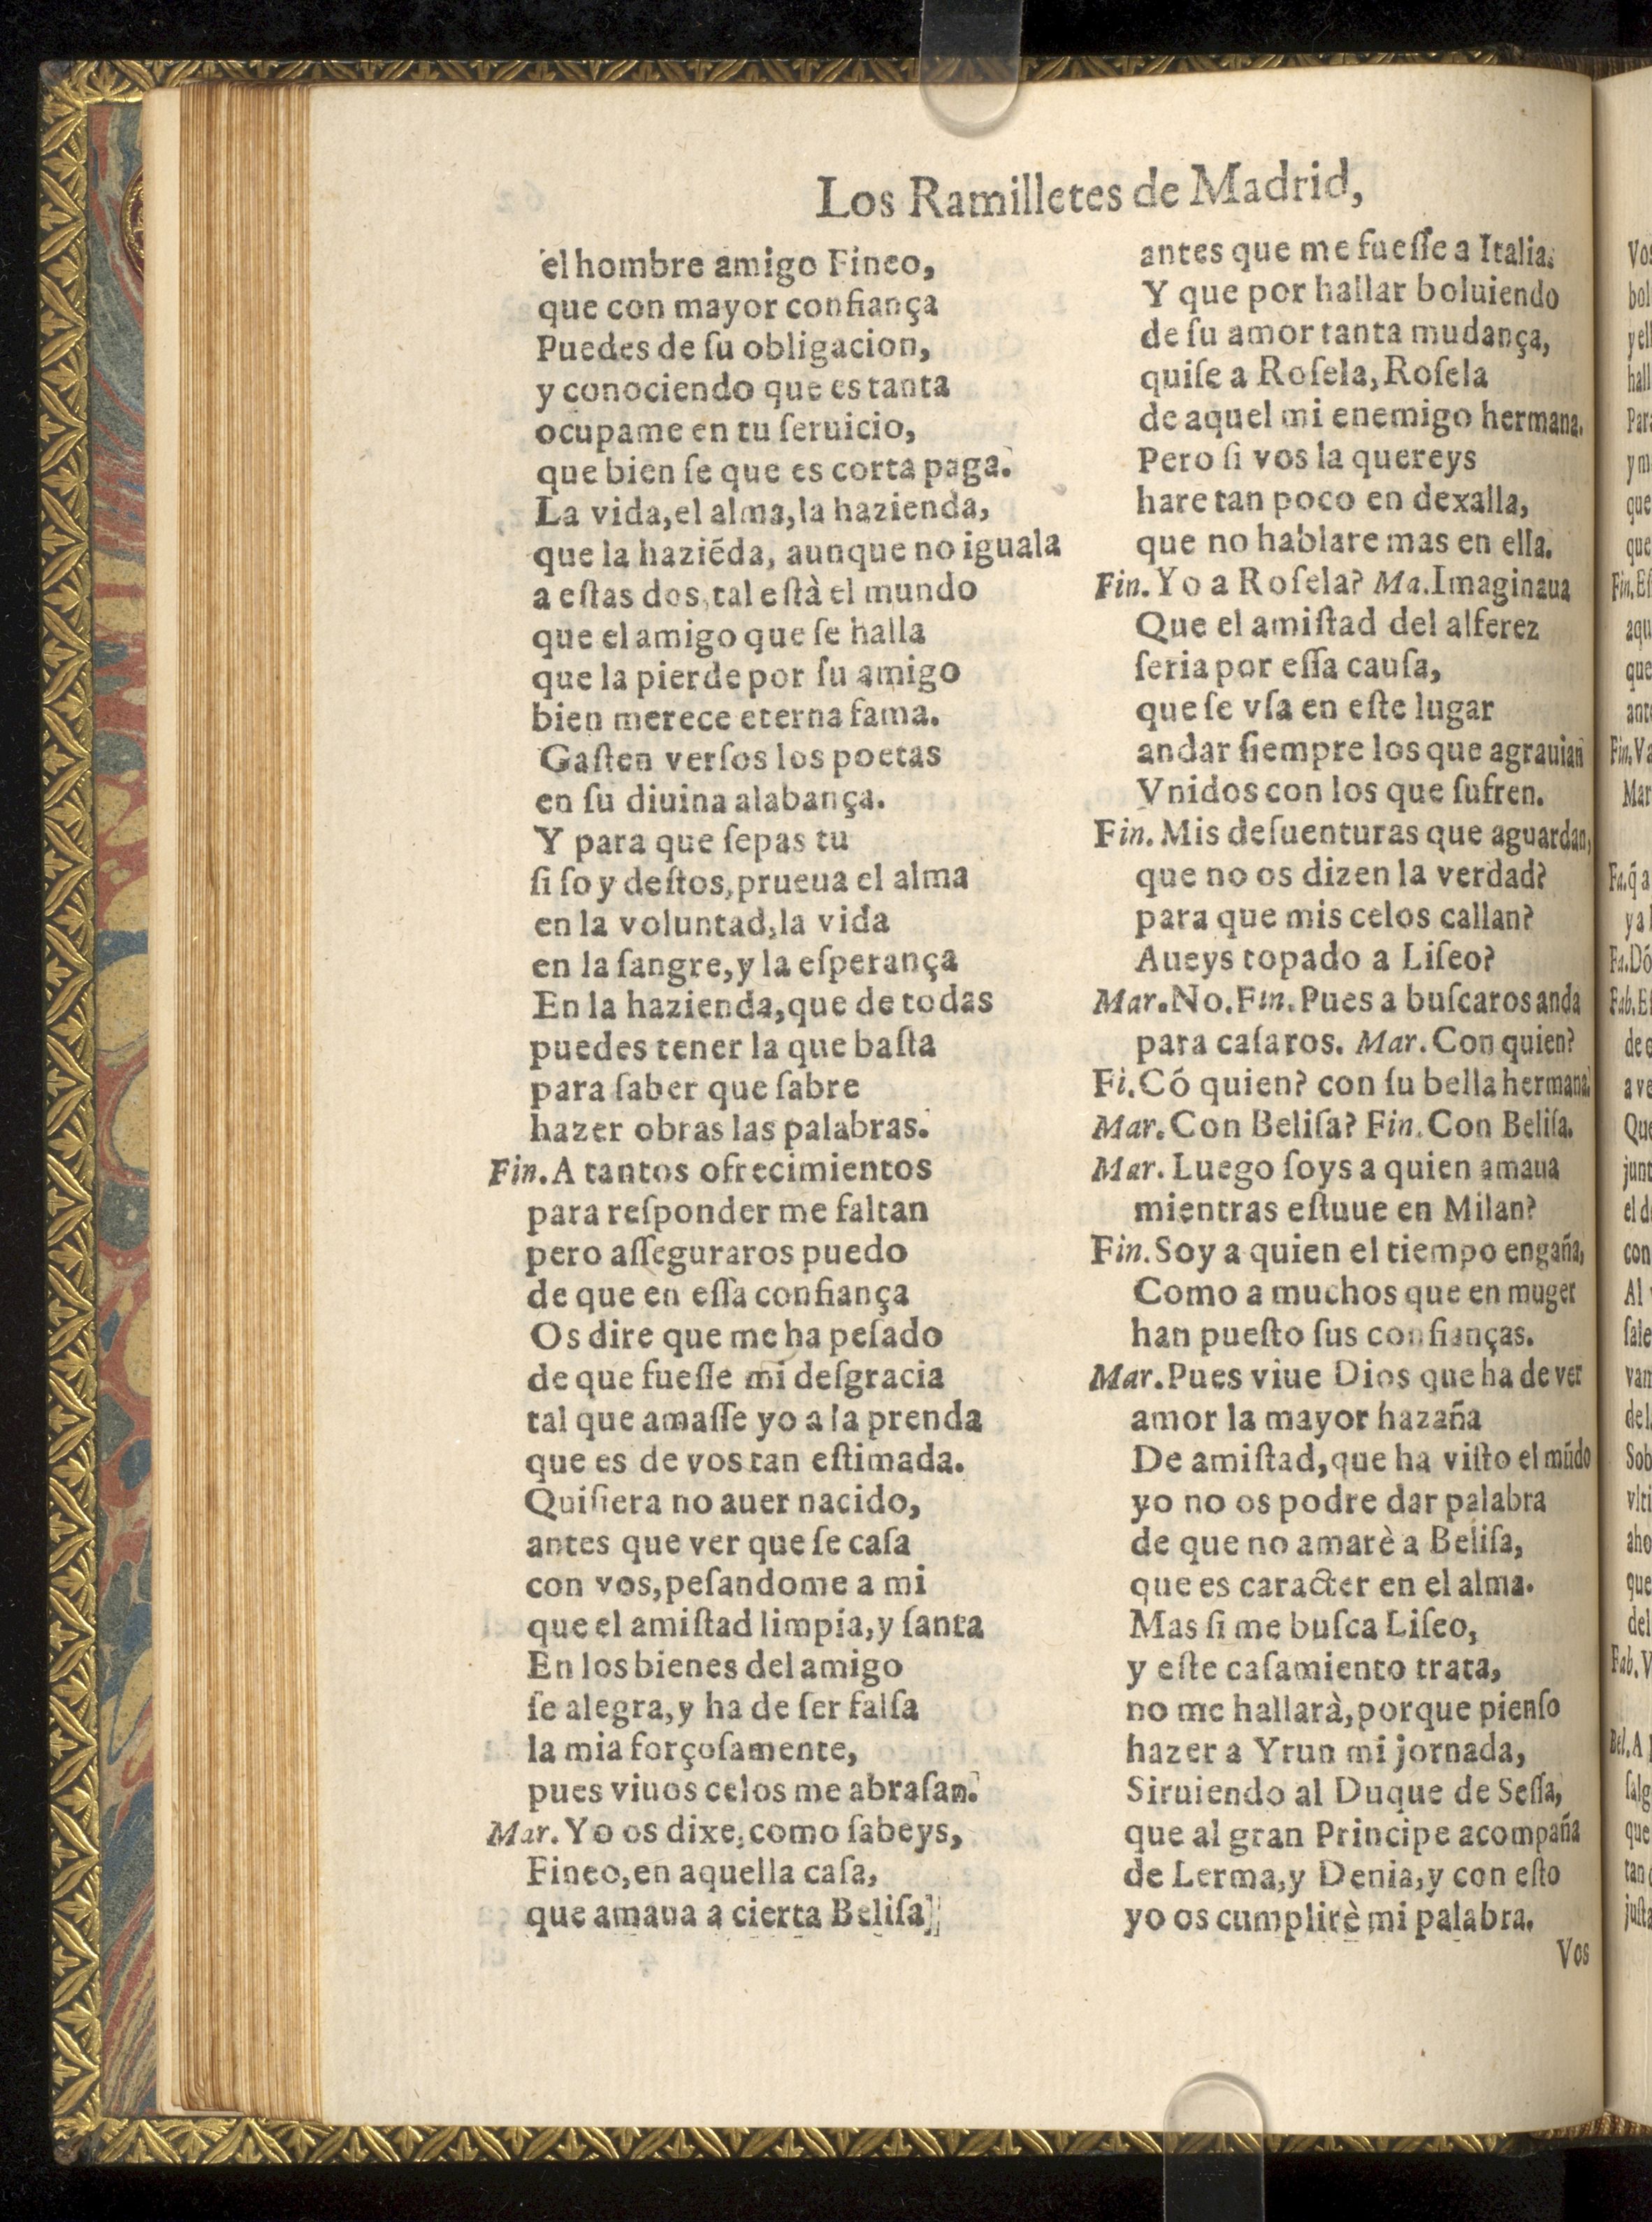 Los Ramilletes de Madrid,
el hombre amigo Fineo,
que con mayor confiança
Puedes de ſu obligacion,
y conociendo que es tanta
ocupame en tu ſeruicio,
que bien ſe que es corta paga.
La vida, el alma, la hazienda,
que la haziẽda, aunque no iguala
a eſtas dos, tal eſtà el mundo
que el amigo que ſe halla
que la pierde por ſu amigo
bien merece eterna fama.
Gaſten verſos los poetas
en ſu diuina alabança.
Y para que ſepas tu
ſi ſoy deſtos, prueua el alma
en la voluntad, la vida
en la ſangre, y la eſperança
En la hazienda, que de todas
puedes tener la que baſta
para ſaber que ſabre
hazer obras las palabras.
Fin. A tantos ofrecimientos
para reſponder me faltan
pero aſſeguraros puedo
de que en eſſa confiança
Os dire que me ha peſado
de que fueſſe mi deſgracia
tal que amaſſe yo a la prenda
que es de vos tan eſtimada.
Quiſiera no auer nacido,
antes que ver que ſe caſa
con vos, peſandome a mi
que el amiſtad limpia, y ſanta
En los bienes del amigo
ſe alegra, y ha de ſer falſa
la mia forçoſamente,
pues viuos celos me abraſan.
Mar. Yo os dixe, como ſabeys,
Fineo, en aquella caſa,
que amaua a cierta Beliſa
antes que me fueſſe a Italia.
Y que por hallar boluiendo
de ſu amor tanta mudança,
quiſe a Roſela, Roſela
de aquel mi enemigo hermana.
Pero ſi vos la quereys
hare tan poco en dexalla,
que no hablare mas en ella.
Fin. Yo a Roſela? Ma. Imaginaua
Que el amiſtad del alferez
ſeria por eſſa cauſa,
que ſe vſa en eſte lugar
andar ſiempre los que agrauian
Vnidos con los que ſufren.
Fin. Mis deſuenturas que aguardan,
que no os dizen la verdad?
para que mis celos callan?
Aueys topado a Liſeo?
Mar. No. Fin. Pues a buſcaros anda
para caſaros. Mar. Con quien?
Fi. Cõ quien? con ſu bella hermana.
Mar. Con Beliſa? Fin. Con Beliſa.
Mar. Luego ſoys a quien amaua
mientras eſtuue en Milan?
Fin. Soy a quien el tiempo engaña,
Como a muchos que en muger
han pueſto ſus confianças.
Mar. Pues viue Dios que ha de ver
amor la mayor hazaña
De amiſtad, que ha viſto el mũdo
yo no os podre dar palabra
de que no amarè a Beliſa,
que es caracter en el alma.
Mas ſi me buſca Liſeo,
y eſte caſamiento trata,
no me hallarà, porque pienſo
hazer a Yrun mi jornada,
Siruiendo al Duque de Seſſa,
que al gran Principe acompaña
de Lerma, y Denia, y con eſto
yo os cumplirè mi palabra.
Vos